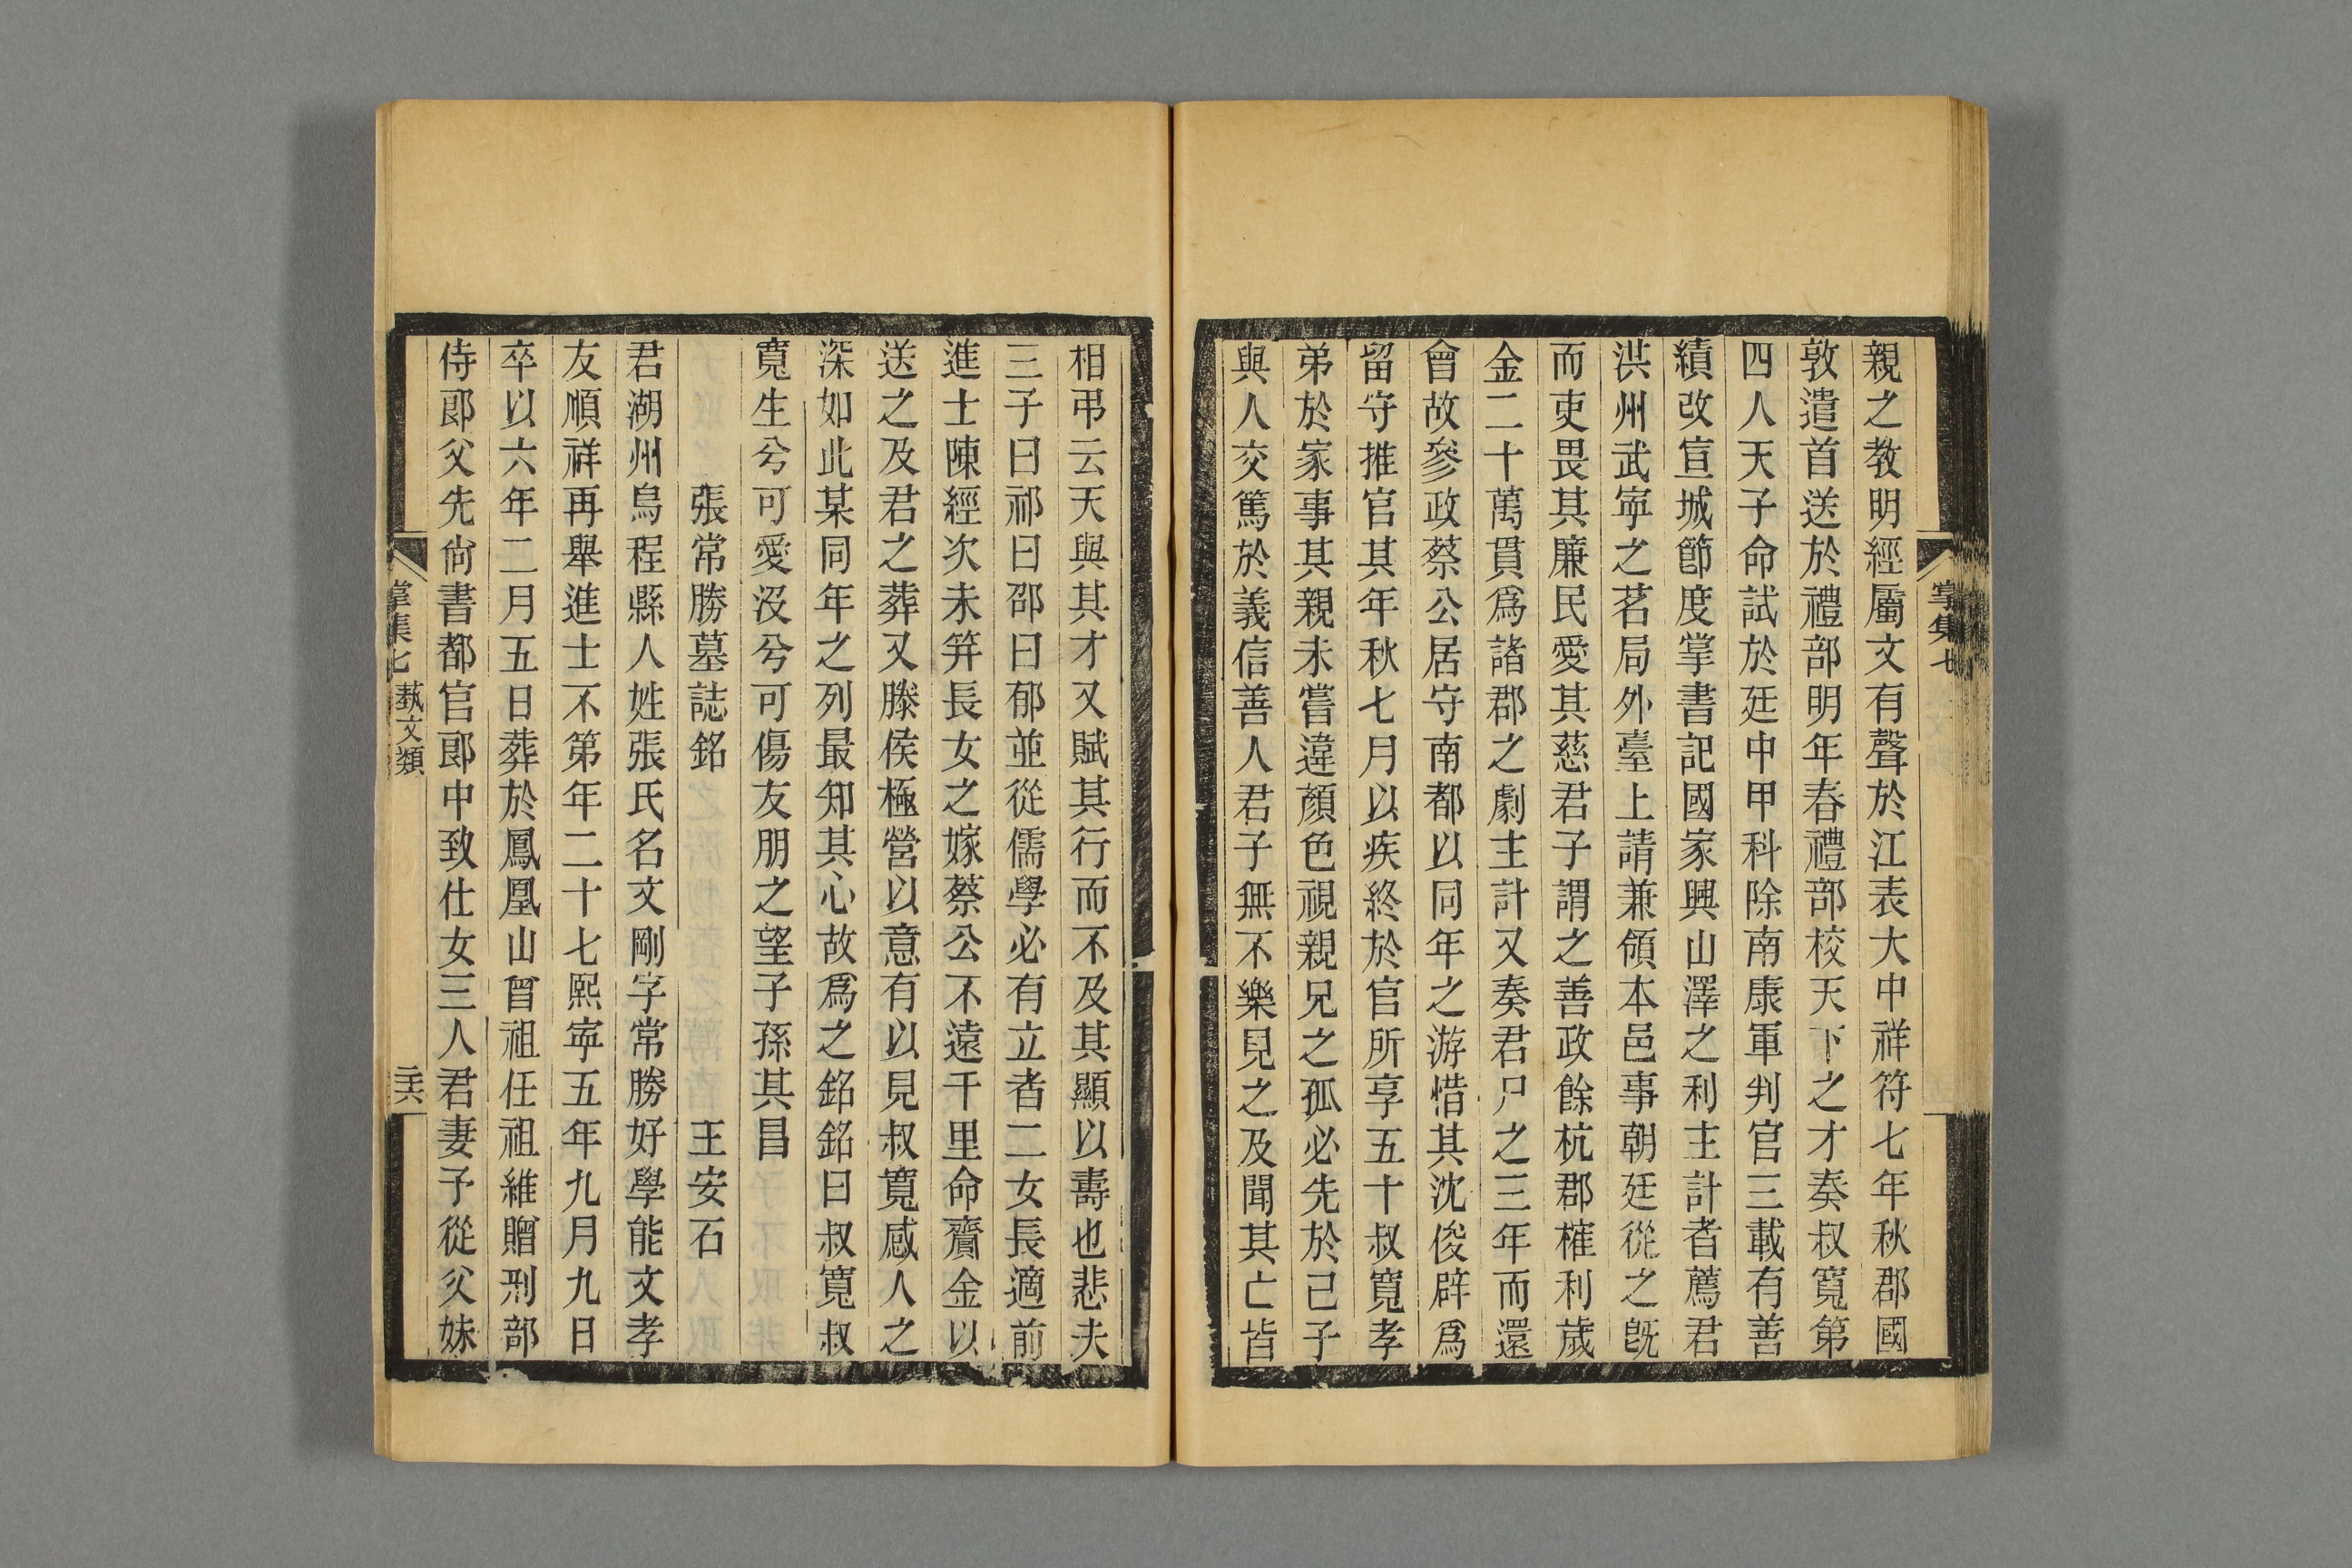 親之教明經屬文有聲於江表大中祥符七年秋郡國
敦遣首送於禮部明年春禮部校天下之才奏叔寬第
四人天子命試於廷中甲科除南康軍判官三載有善
績改宣城節度掌書記國家興山澤之利主計者薦君
洪州武寧之茗局外臺上請兼領本邑事朝廷從之旣
而吏畏其廉民愛其慈君子謂之善政餘杭郡榷利歲
金二十萬貫爲諸郡之劇主計又奏君尸之三年而還
會故參政蔡公居守南都以同年之游惜其沈俊辟爲
留守推官其年秋七月以疾終於官所享五十叔寬孝
弟於家事其親未嘗違顏色視親兄之孤必先於己子
與人交篤於義信善人君子無不樂見之及聞其亡皆
掌集七
相弔云天與其才又賦其行而不及其顯以壽也悲夫
三子曰祁曰邵曰郁並從儒學必有立者二女長適前
進士陳經次未笄長女之嫁蔡公不遠千里命齎金以
送之及君之葬又滕侯極營以意有以見叔寬感人之
深如此某同年之列最知其心故爲之銘銘曰叔寬叔
寬生兮可愛沒兮可傷友朋之望子孫其昌
張常勝墓誌銘 王安石
君湖州烏程縣人姓張氏名文剛字常勝好學能文孝
友順祥再舉進士不第年二十七熙寧五年九月九日
卒以六年二月五日葬於鳳凰山曾祖任祖維贈刑部
侍郎父先尙書都官郎中致仕女三人君妻予從父妹
掌集七 藝文類 二六